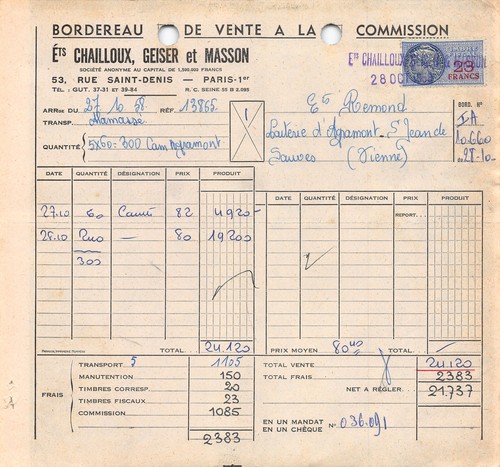 BORDEREAU DE VENTE A LA COMMISSION
Éts CHAILLOUX, GEISER et MASSON
SOCIÉTÉ ANONYME AU CAPITAL DE 1.500.000 FRANCS
53, RUE SAINT-DENIS - PARIS-1er
TÉL. : GUT. 37-31 et 39-84 R. C. SEINE 55 B 2.095
Ets CHAILLOUX
28 OCT
23
FRANCS
ARRge DU 27.10.58. RÉF. 13865
TRANSP.
QUANTITÉ 5x60=300 Cam Appamont
1
Ets Remond
Laiterie d'Appamont St Jean de
Sauves (Vienne)
BORD. N°
IA
10.660
28.10.
DATE QUANTITÉ DÉSIGNATION PRIX PRODUIT
27.10 60 82 4920
28.10 240 — 80 19200
300
TOTAL 24.120
DATE QUANTITÉ DÉSIGNATION PRIX PRODUIT
REPORT
PRIX MOYEN 80 TOTAL
FRAIS
TRANSPORT 5 1105
MANUTENTION 150
TIMBRES CORRESP. 20
TIMBRES FISCAUX 23
COMMISSION 1085
2383
TOTAL VENTE 24.120
TOTAL FRAIS 2383
NET A RÉGLER 21.737
EN UN MANDAT
EN UN CHÈQUE N° 036.091